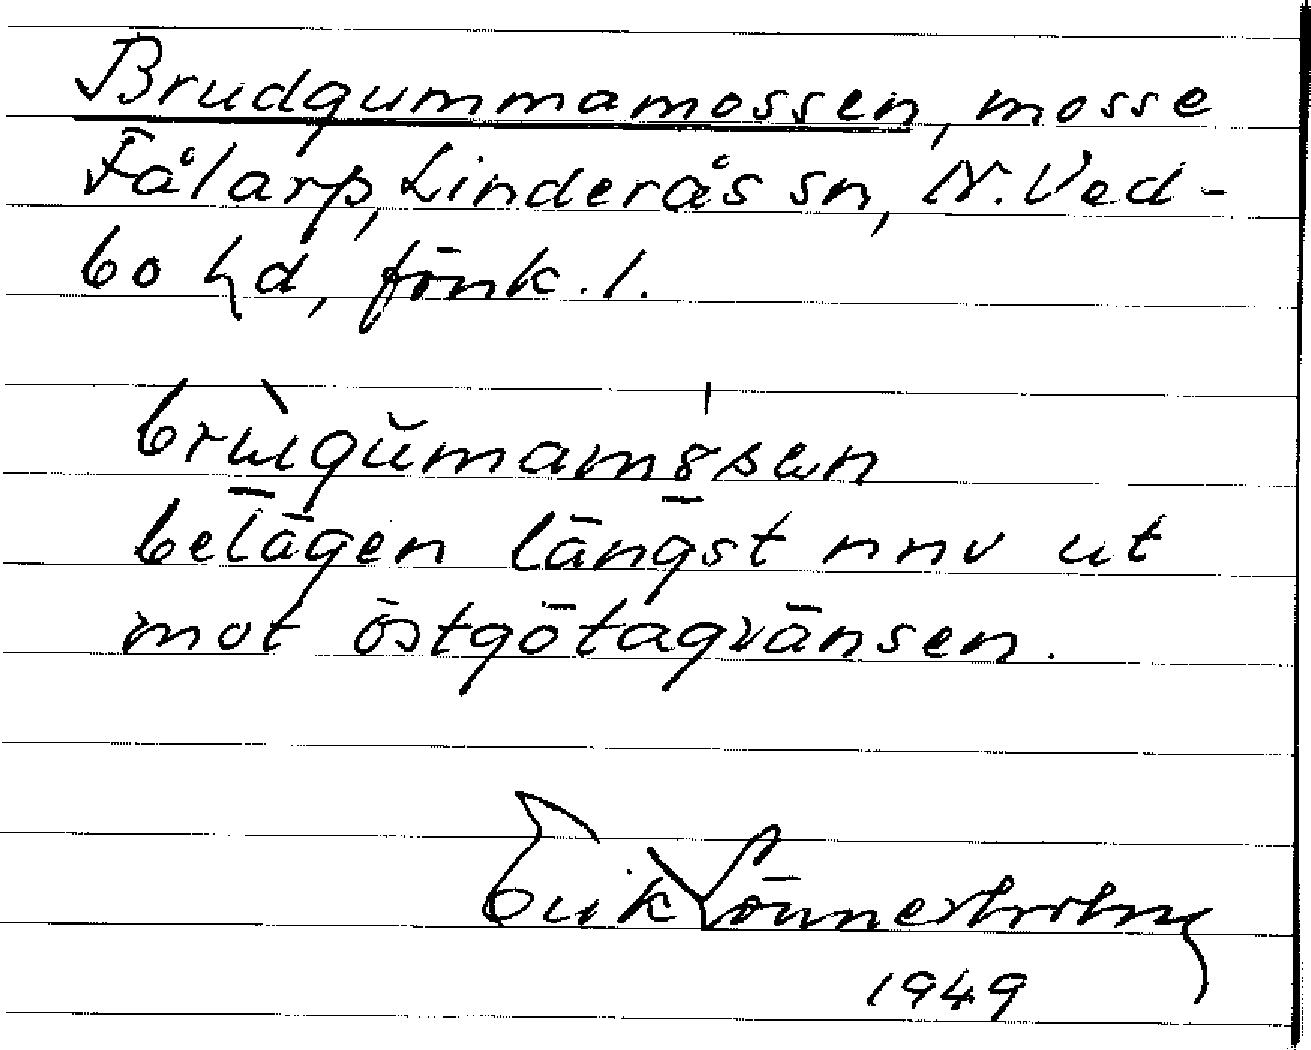 Brudgummamossen, mosse
Fålarp, Linderås sn, N. Ved-
bo hd, Jönk. l.
belägen längst nnv ut
mot östgötagränsen.
Erik Lönnerholm
1949